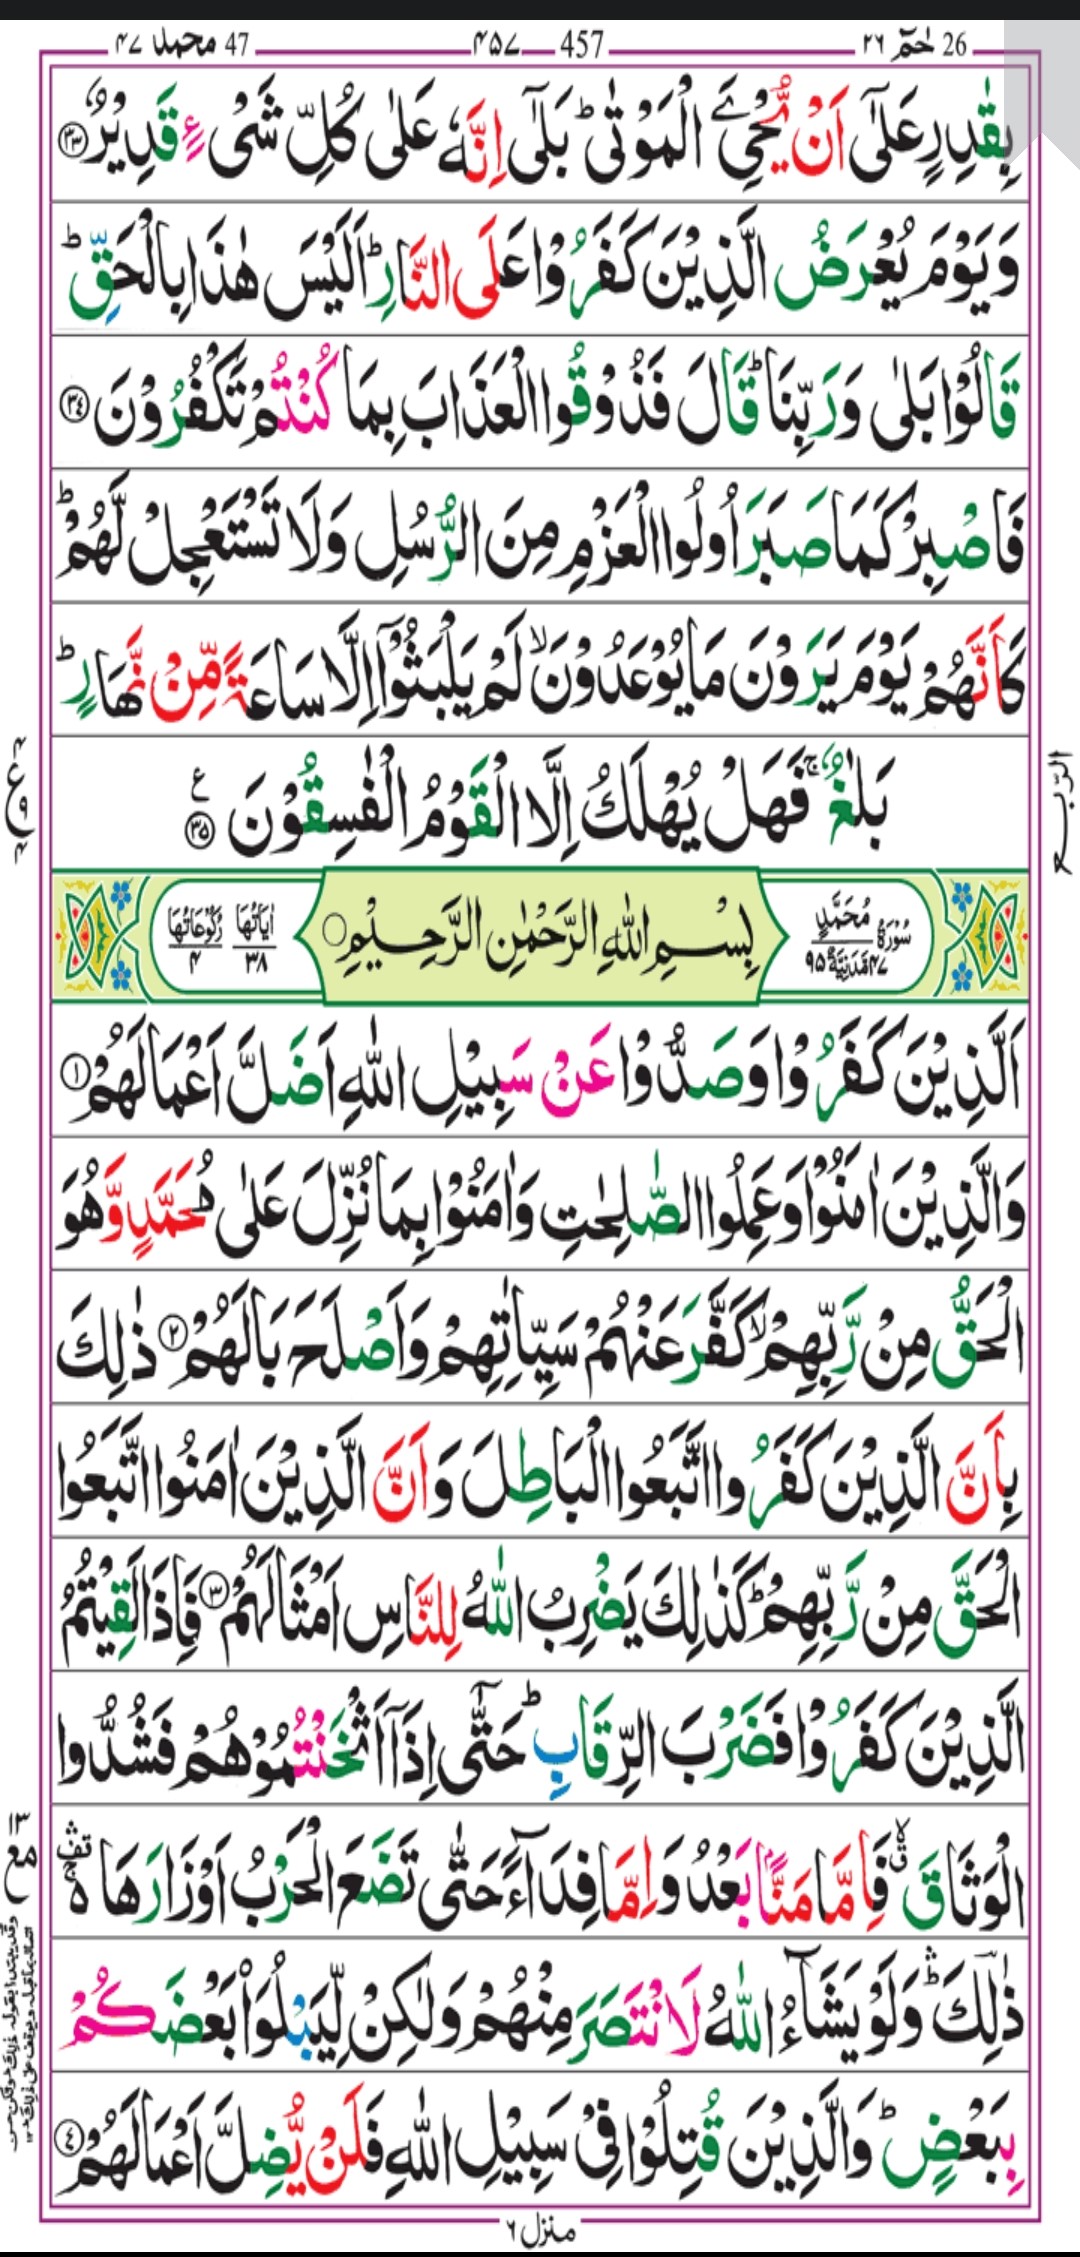 26 حٰمٓ ٢٦
457 ۴۵۷
47 محمد ۴۷
بِقٰدِرٍ عَلٰۤى اَنْ يُّحْيِۦَ الْمَوْتٰى ؕ بَلٰۤى اِنَّهٗ عَلٰى كُلِّ شَىْءٍ قَدِيْرٌ ﴿۳۳﴾
وَيَوْمَ يُعْرَضُ الَّذِيْنَ كَفَرُوْا عَلَى النَّارِ ؕ اَلَيْسَ هٰذَا بِالْحَقِّ ؕ
قَالُوْا بَلٰى وَرَبِّنَا ؕ قَالَ فَذُوْقُوا الْعَذَابَ بِمَا كُنْتُمْ تَكْفُرُوْنَ ﴿۳۴﴾
فَاصْبِرْ كَمَا صَبَرَ اُولُوا الْعَزْمِ مِنَ الرُّسُلِ وَلَا تَسْتَعْجِلْ لَّهُمْ ؕ
كَاَنَّهُمْ يَوْمَ يَرَوْنَ مَا يُوْعَدُوْنَ ۙ لَمْ يَلْبَثُوْۤا اِلَّا سَاعَةً مِّنْ نَّهَارٍ ؕ
الرّبع
بَلٰغٌ ۚ فَهَلْ يُهْلَكُ اِلَّا الْقَوْمُ الْفٰسِقُوْنَ ﴿۳۵﴾ ع
سُوْرَةُ مُحَمَّدٍ ۴۷ مَدَنِيَّةٌ ۹۵
بِسْمِ اللهِ الرَّحْمٰنِ الرَّحِيْمِ ○
اٰيَاتُهَا ۳۸ رُكُوْعَاتُهَا ۴
اَلَّذِيْنَ كَفَرُوْا وَصَدُّوْا عَنْ سَبِيْلِ اللهِ اَضَلَّ اَعْمَالَهُمْ ﴿۱﴾
وَالَّذِيْنَ اٰمَنُوْا وَعَمِلُوا الصّٰلِحٰتِ وَاٰمَنُوْا بِمَا نُزِّلَ عَلٰى مُحَمَّدٍ وَّهُوَ
الْحَقُّ مِنْ رَّبِّهِمْ ۙ كَفَّرَ عَنْهُمْ سَيِّاٰتِهِمْ وَاَصْلَحَ بَالَهُمْ ﴿۲﴾ ذٰلِكَ
بِاَنَّ الَّذِيْنَ كَفَرُوا اتَّبَعُوا الْبَاطِلَ وَاَنَّ الَّذِيْنَ اٰمَنُوا اتَّبَعُوا
الْحَقَّ مِنْ رَّبِّهِمْ ؕ كَذٰلِكَ يَضْرِبُ اللهُ لِلنَّاسِ اَمْثَالَهُمْ ﴿۳﴾ فَاِذَا لَقِيْتُمُ
الَّذِيْنَ كَفَرُوْا فَضَرْبَ الرِّقَابِ ؕ حَتّٰۤى اِذَاۤ اَثْخَنْتُمُوْهُمْ فَشُدُّوا
الْوَثَاقَ ۙ فَاِمَّا مَنًّۢا بَعْدُ وَاِمَّا فِدَآءً حَتّٰى تَضَعَ الْحَرْبُ اَوْزَارَهَا ۛ۬ۚ
ذٰلِكَ ۛؕ وَلَوْ يَشَآءُ اللهُ لَانْتَصَرَ مِنْهُمْ وَلٰكِنْ لِّيَبْلُوَا۟ بَعْضَكُمْ
بِبَعْضٍ ؕ وَالَّذِيْنَ قُتِلُوْا فِىْ سَبِيْلِ اللهِ فَلَنْ يُّضِلَّ اَعْمَالَهُمْ ﴿۴﴾
منزل ۶